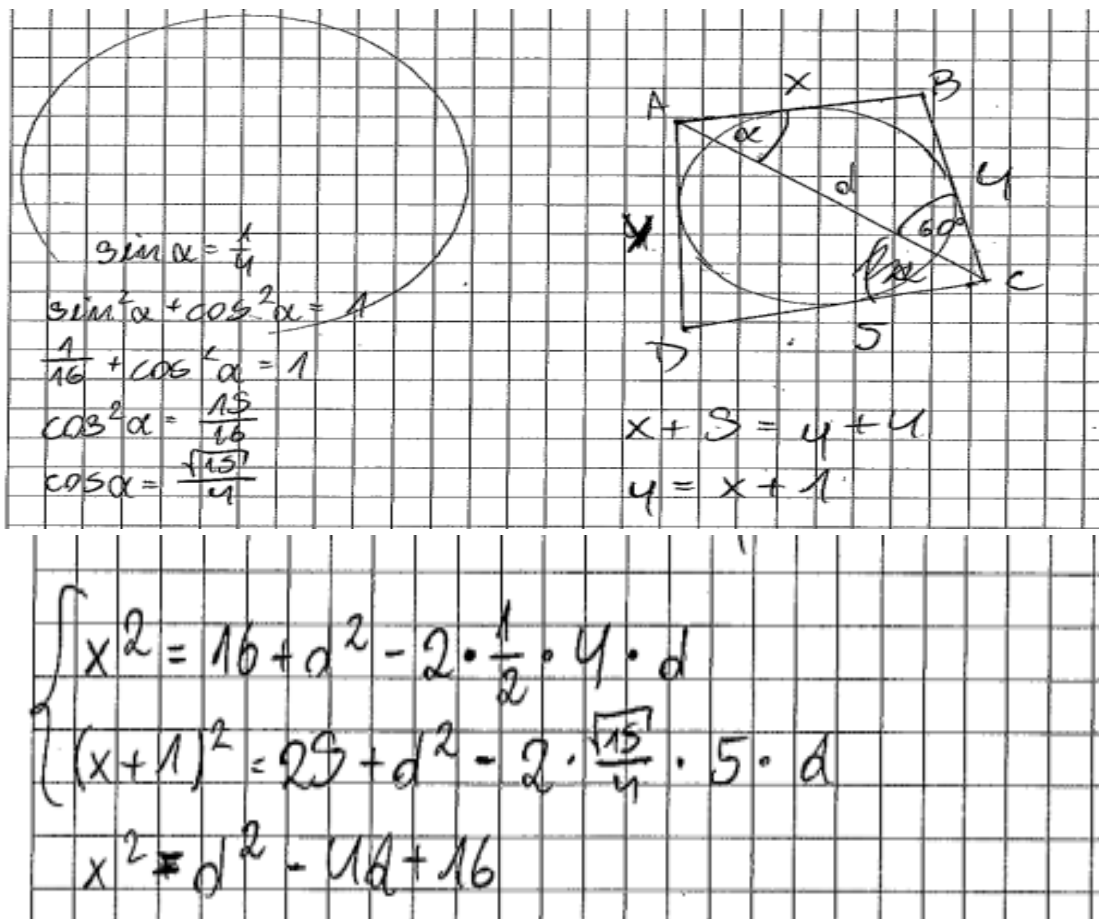 sin α = 1/4
sin²α + cos²α = 1
1/16 + cos²α = 1
cos²α = 15/16
cos α = √15/4
A x B
α
d
4
60°
y
C
D
5
x + 5 = y + 4
y = x + 1
x² = 16 + d² - 2 · 1/2 · 4 · d
(x+1)² = 25 + d² - 2 · √15/4 · 5 · d
x² = d² - 4d + 16